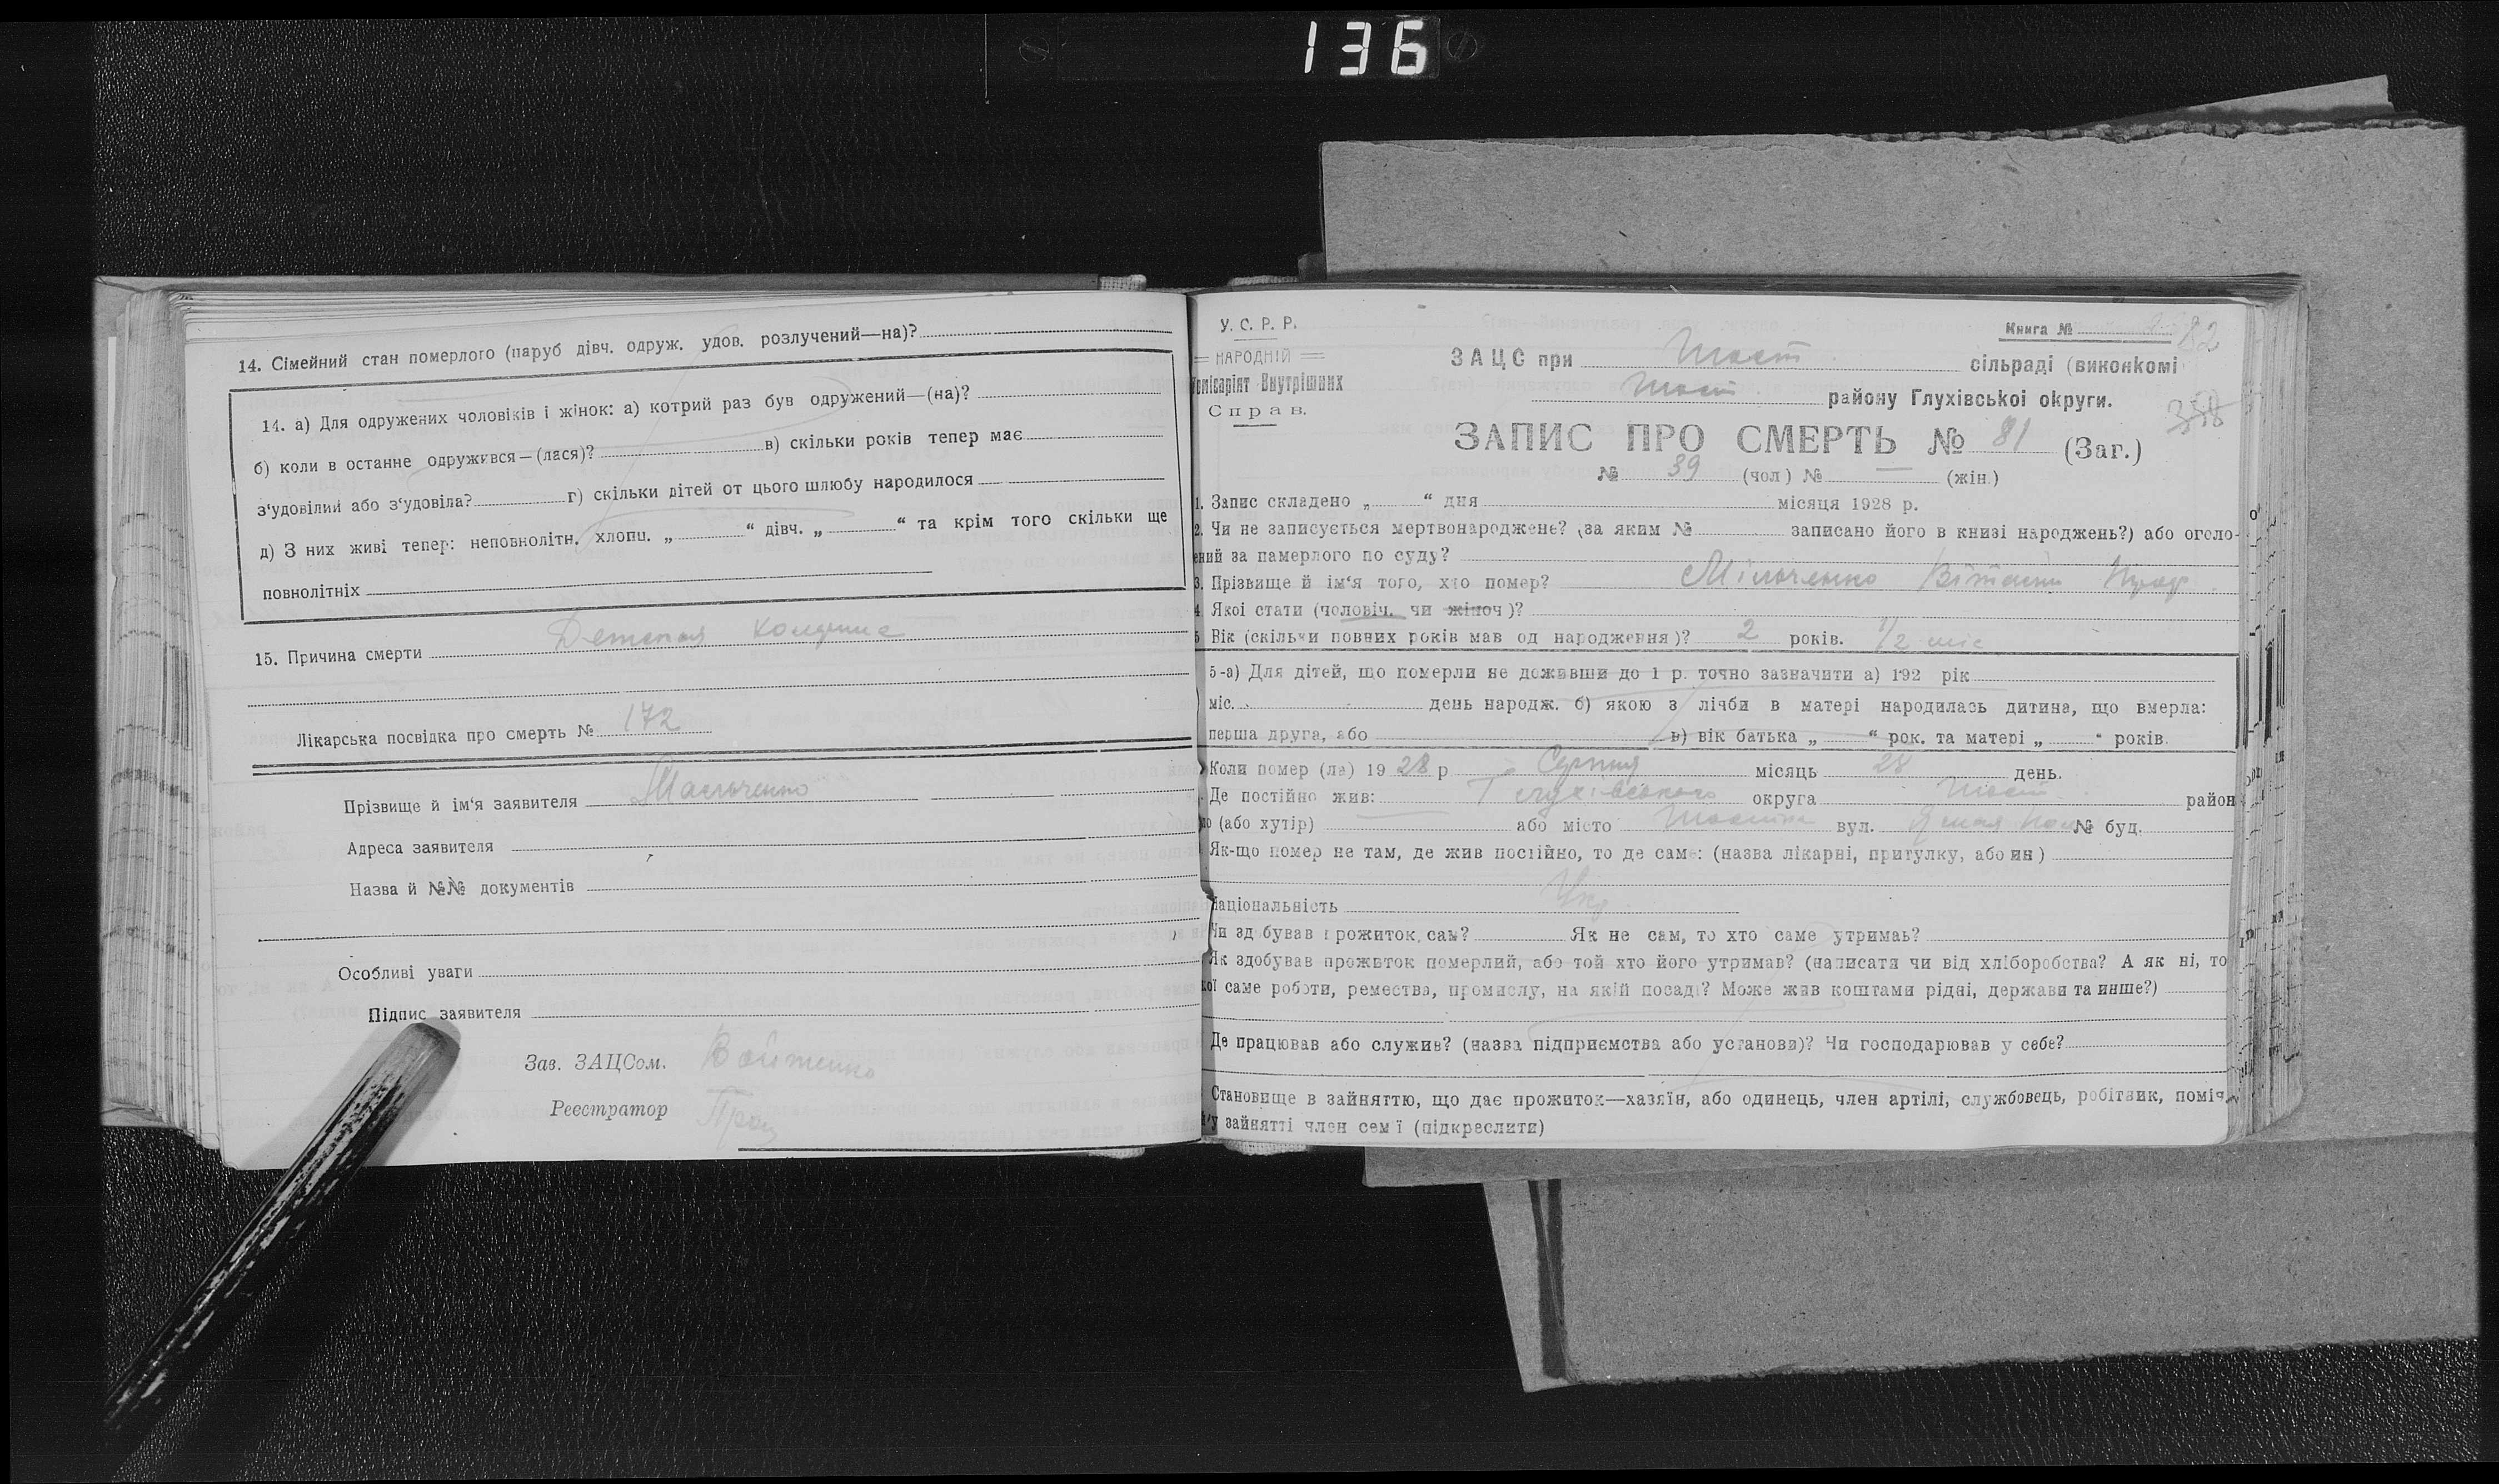 136
14. Сімейний стан померлого (паруб дівч. одруж. удов. розлучений—на)?
14. а) Для одружених чоловіків і жінок: а) котрий раз був одружений—(на)?
б) коли в останне одружився—(лася)? в) скільки років тепер має
з‘удовілий або з‘удовіла? г) скільки дітей от цього шлюбу народилося
д) З них живі тепер: неповнолітн. хлопц. „ “ дівч. „ “ та крім того скільки ще
повнолітніх
15. Причина смерти Детская
Лікарська посвідка про смерть № 172
Прізвище й ім‘я заявителя
Адреса заявителя
Назва й №№ документів
Особливі уваги
Підпис заявителя
Зав. ЗАЦСом. Войтенко
Реестратор
У. С. Р. Р.
НАРОДНІЙ
Комісаріят Внутрішних
Справ.
Книга № 82
ЗАЦС при Шост сільраді (виконкомі
Шост району Глухівської округи.
358
ЗАПИС ПРО СМЕРТЬ № 81 (Заг.)
№ 39 (чол) № — (жін.)
1. Запис складено „ “ дня місяця 1928 р.
2. Чи не записується мертвонароджене? (за яким № записано його в книзі народжень?) або оголо-
ений за памерлого по суду?
3. Прізвище й ім‘я того, хто помер? Мільченко
4. Якої стати (чоловіч. чи жіноч)?
5. Вік (скільки повних років мав од народження)? 2 років. 1/2 міс
5-а) Для дітей, що померли не доживши до 1 р. точно зазначити а) 192 рік
міс. день народж. б) якою з лічби в матері народилась дитина, що вмерла:
перша друга, або в) вік батька „ “ рок. та матері „ “ років.
Коли помер (ла) 1928 р Серпня місяць 28 день.
Де постійно жив: Глухівського округа Шост район
(або хутір) або місто Шостка вул. № буд.
Як-що помер не там, де жив постійно, то де саме: (назва лікарні, притулку, або ин)
Національність Укр
Чи здбував прожиток сам? Як не сам, то хто саме утримаь?
Як здобував прожиток померлий, або той хто його утримав? (написати чи від хліборобства? А як ні, то
кої саме роботи, ремества, промислу, на якій посаді? Може жив коштами рідні, держави та инше?)
Де працював або служив? (назва підприємства або установи)? Чи господарював у себе?
Становище в зайняттю, що дає прожиток—хазяїн, або одинець, член артілі, службовець, робітник, поміч.
у зайнятті член сем ї (підкреслити)